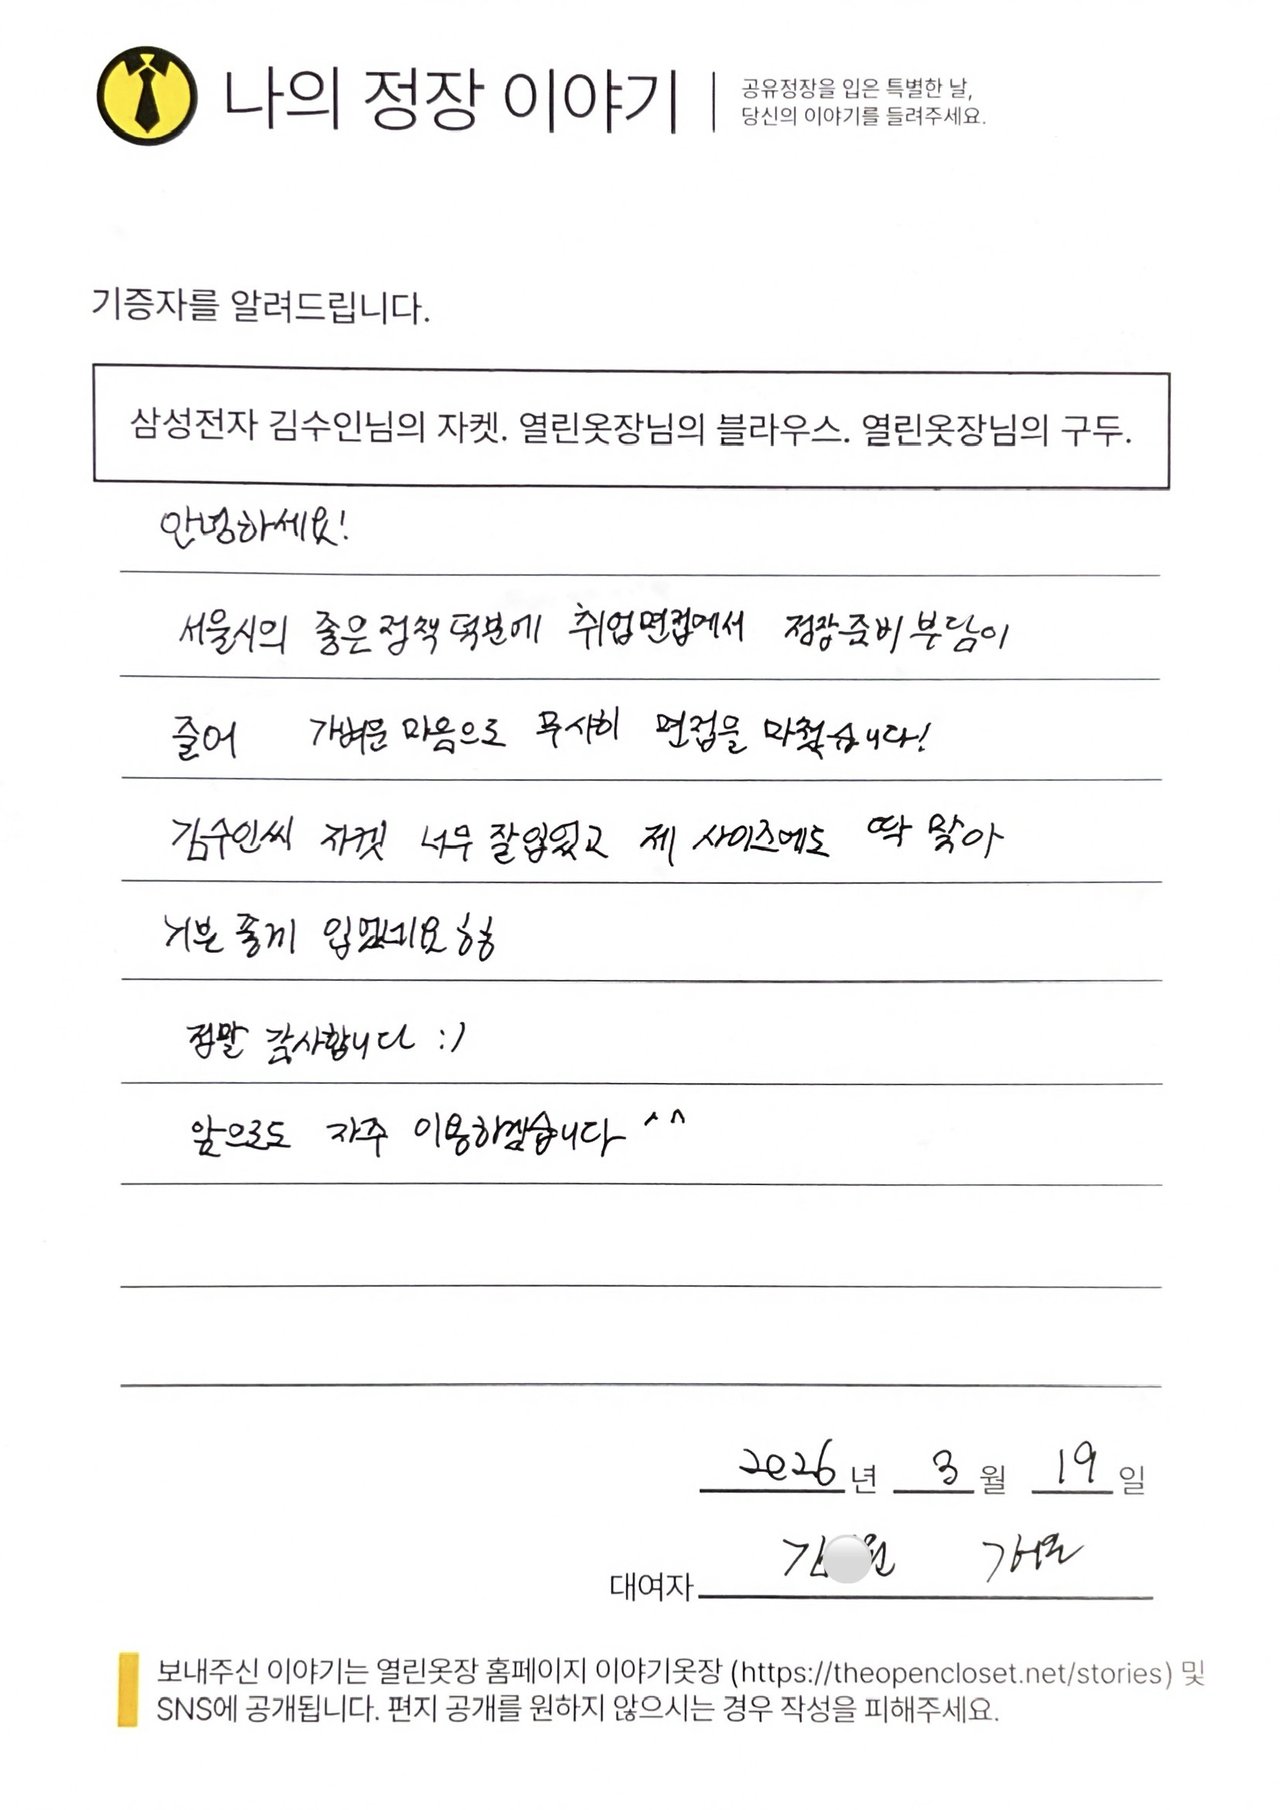 나의 정장 이야기
공유정장을 입은 특별한 날,
당신의 이야기를 들려주세요.
기증자를 알려드립니다.
삼성전자 김수인님의 자켓. 열린옷장님의 블라우스. 열린옷장님의 구두.
안녕하세요!
서울시의 좋은 정책 덕분에 취업면접에서 정장준비 부담이
줄어 가벼운 마음으로 무사히 면접을 마쳤습니다!
김수인씨 자켓 너무 잘 입었고 제 사이즈에도 딱 맞아
기분 좋게 입었네요 ㅎㅎ
정말 감사합니다 :)
앞으로도 자주 이용하겠습니다 ^^
2026년 3월 19일
대여자
보내주신 이야기는 열린옷장 홈페이지 이야기옷장 (https://theopencloset.net/stories) 및
SNS에 공개됩니다. 편지 공개를 원하지 않으시는 경우 작성을 피해주세요.